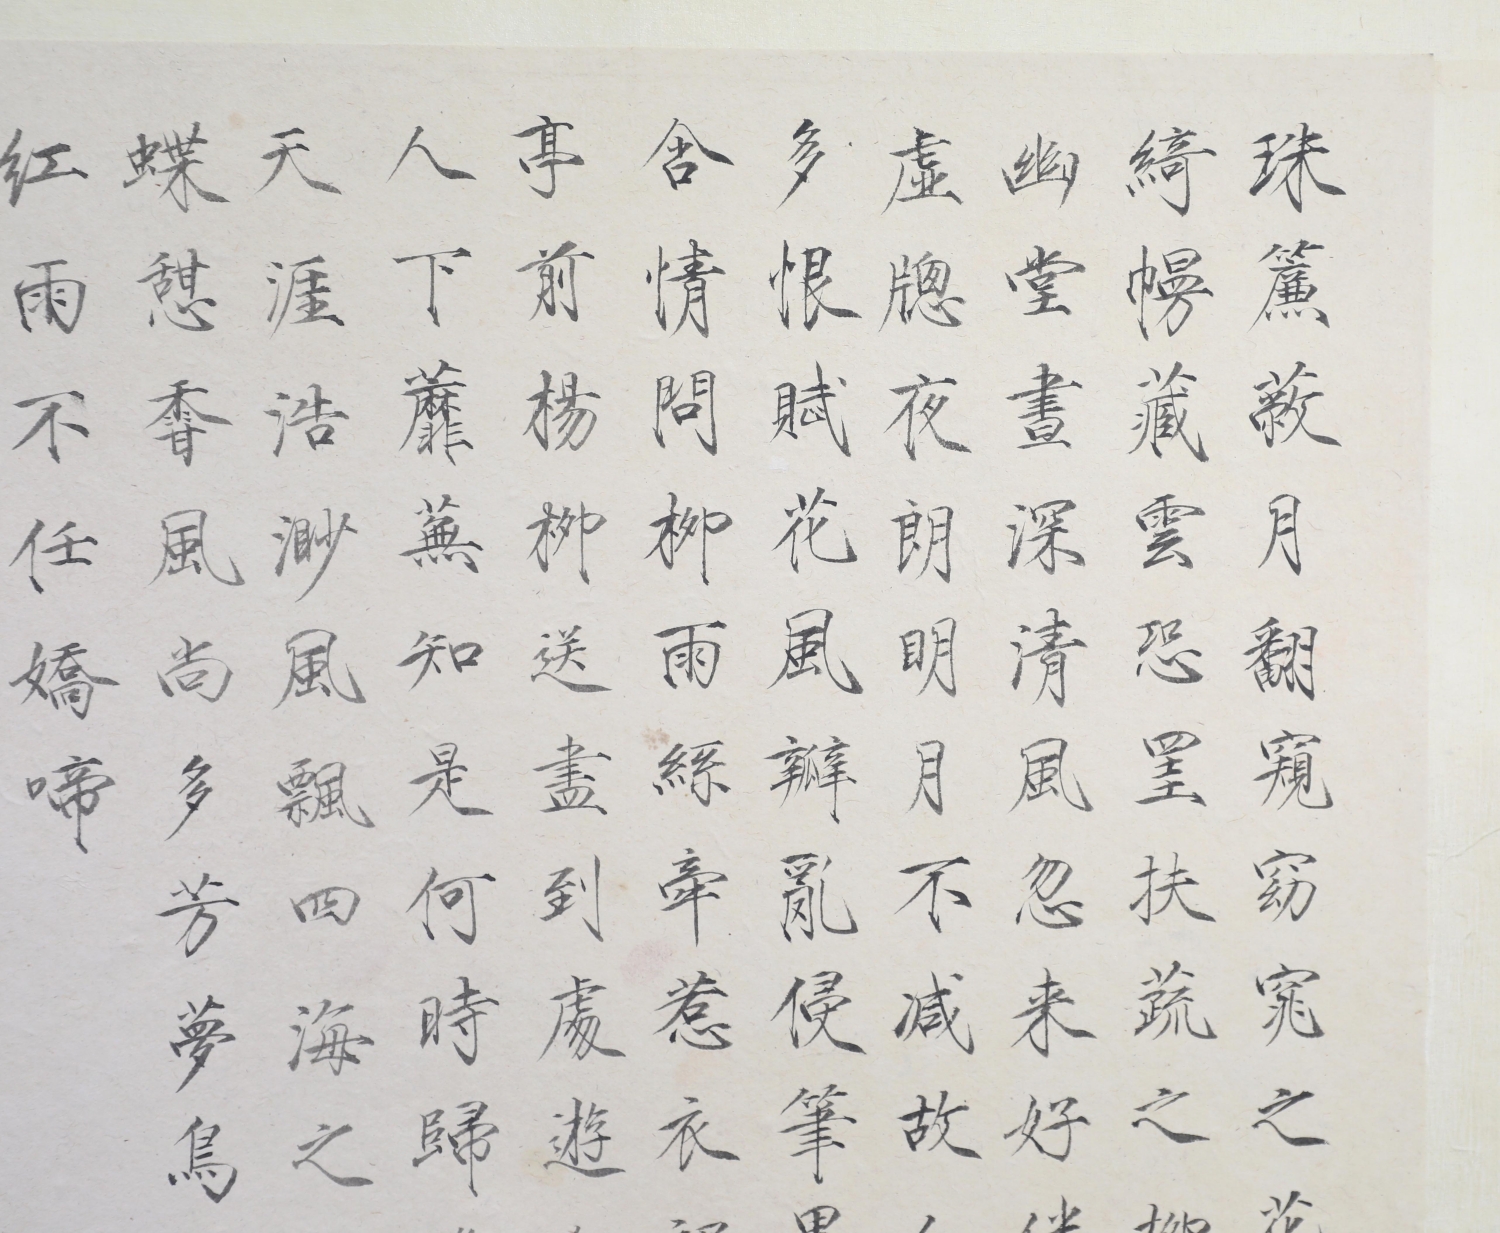 珠簾蔽月翻窺窈窕之花
綺幌藏雲恐罣扶蔬之柳
幽堂晝深清風忽来好伴
虛牕夜朗明月不減故人
多恨賦花風瓣亂侵筆墨
含情問柳雨絲牽惹衣裾
亭前楊柳送盡到處遊人
人下蘼蕪知是何時歸
天涯浩渺風飄四海之
蝶憩香風尚多芳夢鳥
紅雨不任嬌啼